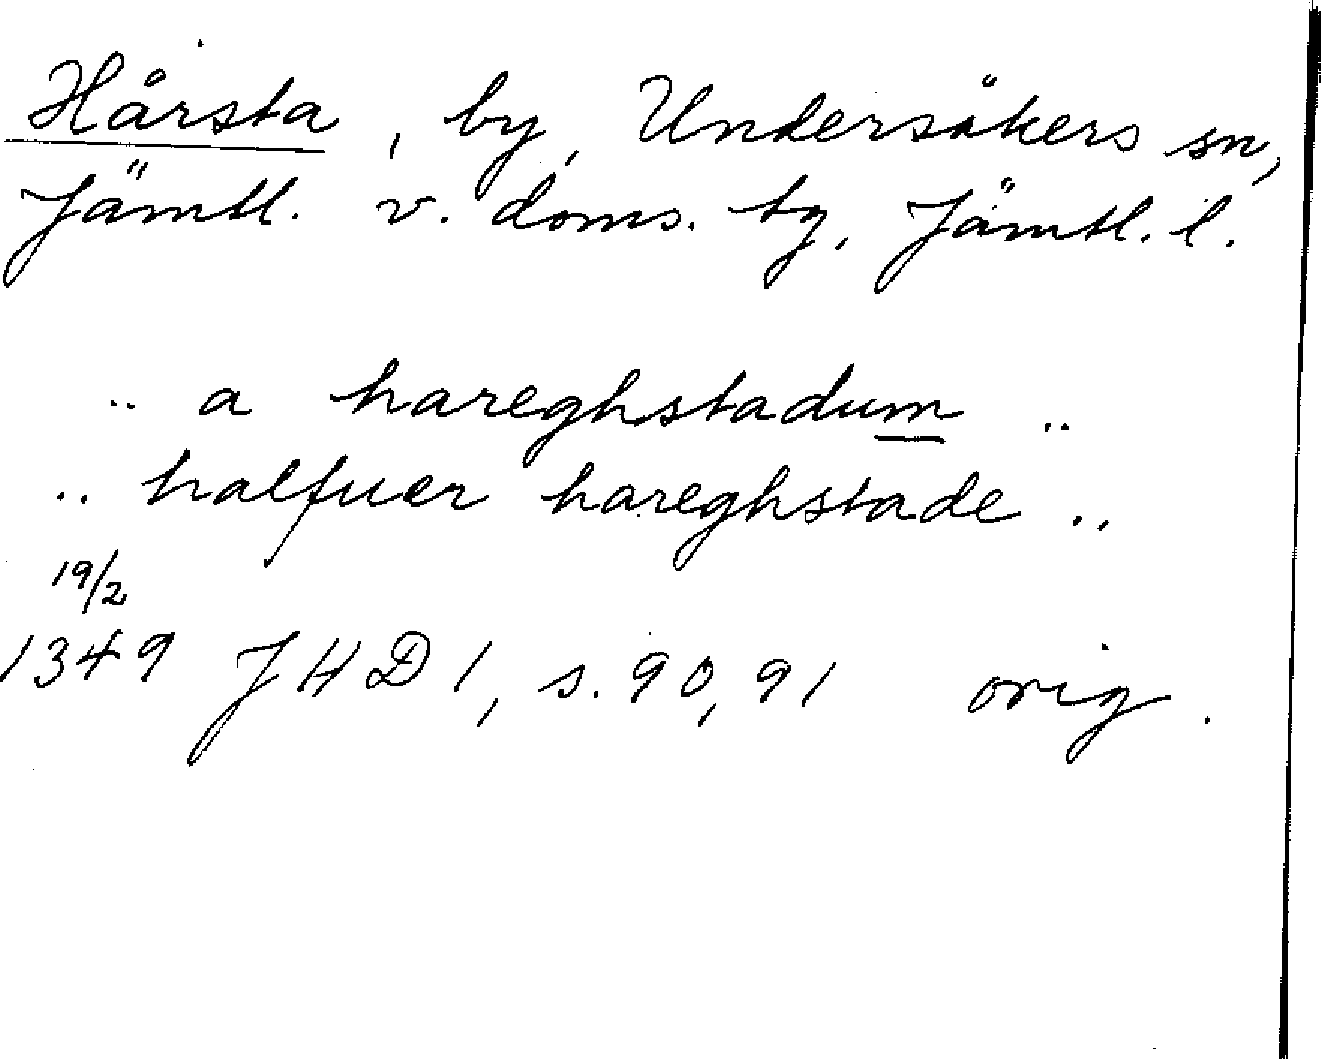 Hårsta, by, Undersåkers sn,
Jämtl. v. doms. tg, Jämtl. l.
.. a hareghstadum ..
.. halfuer hareghstade ..
19/2
1349 JHD 1, s. 90, 91 orig.